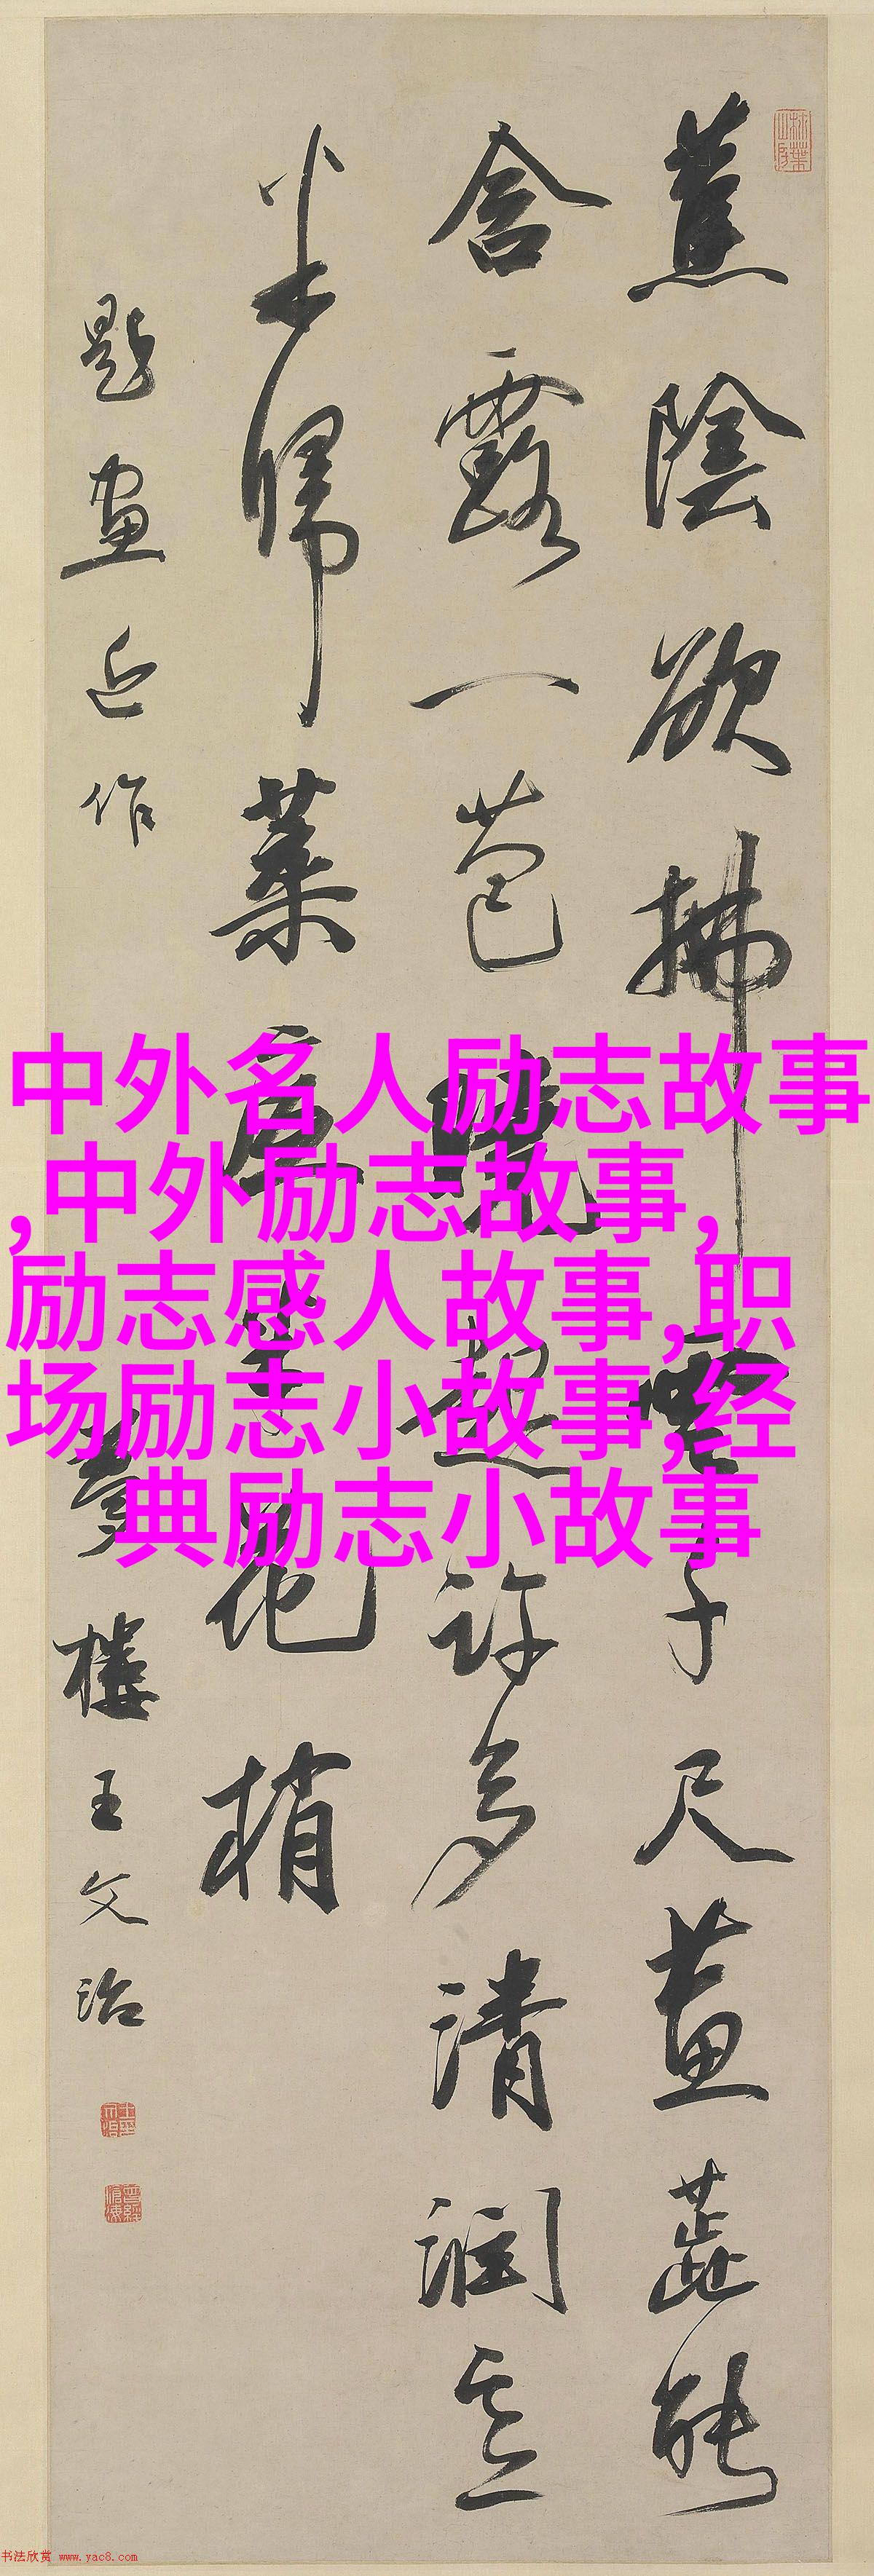 蕉陰欲拂雲千尺畫蕋能
含露一苞曉起許多清潤意
半歸葉底半花梢
題畫近作 夢樓王文治
中外名人励志故事
,中外励志故事,
励志感人故事,职
场励志小故事,经
典励志小故事
书法欣赏 www.yac8.com